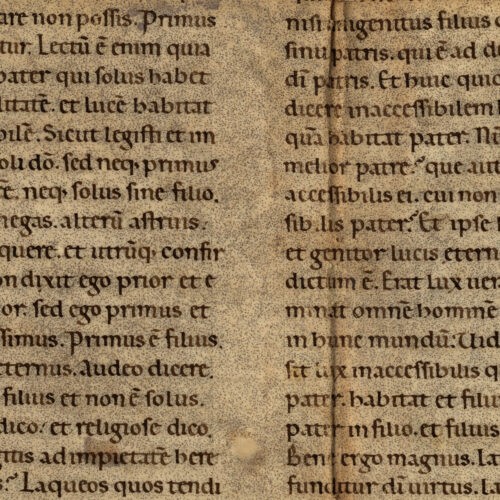 are non possis. Primus
tur. Lectū ē enim quia
pater qui solus habet
litatē. et lucē habitat
bilē. Sicut legisti et in
soli dō. sed neq; primus
rē. neq; solus sine filio.
negas. alterū astruis.
quere. et utrūq; confir
on dixit ego prior et e
or. sed ego primus et
ssimus. Primus ē filius.
eternus. Audeo dicere.
filius et non ē solus.
dico. et religiose dico.
ad impietatē here
s? Laqueos quos tendi
nisi unigenitus filius q
sinu patris. qui ē ad d
dī patris. Et huic quid
dicere inaccessibilem
quā habitat pater. N
melior patre? que aut
accessibilis ei. cui non
sibilis pater? Et ipse l
et genitor lucis etern
dictum ē. Erat lux uer
minat omnē hominē
in hunc mundū. Uid
sit lux inaccessibilis q
pater. habitat et filiu
pater in filio. et filius
Bene ergo magnus. La
funditur dū virtus. La